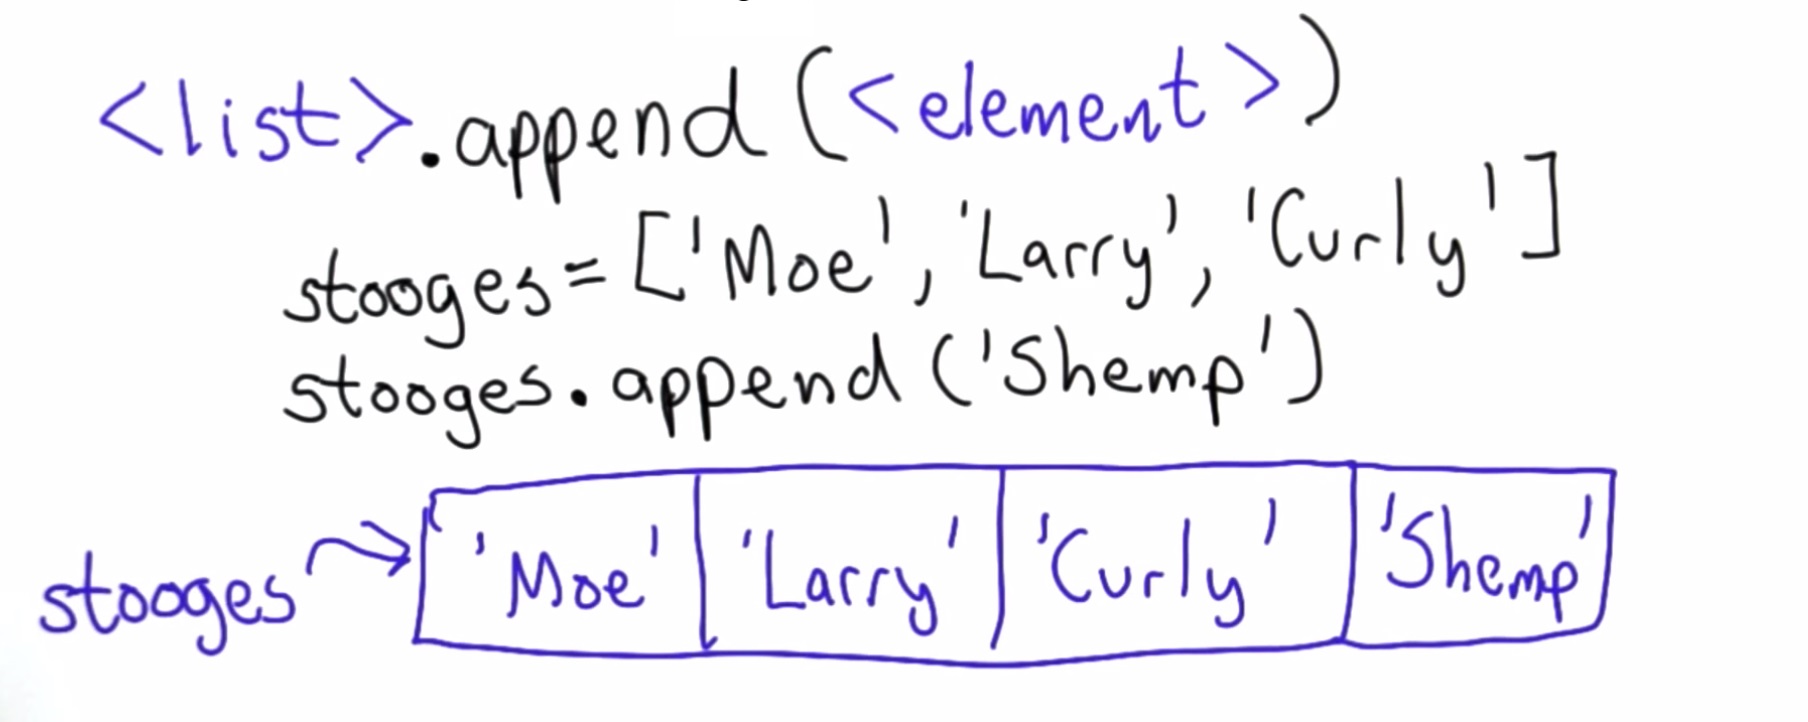 <list>.append(<element>)
stooges = ['Moe', 'Larry', 'Curly']
stooges.append('Shemp')
stooges 'Moe' 'Larry' 'Curly' 'Shemp'